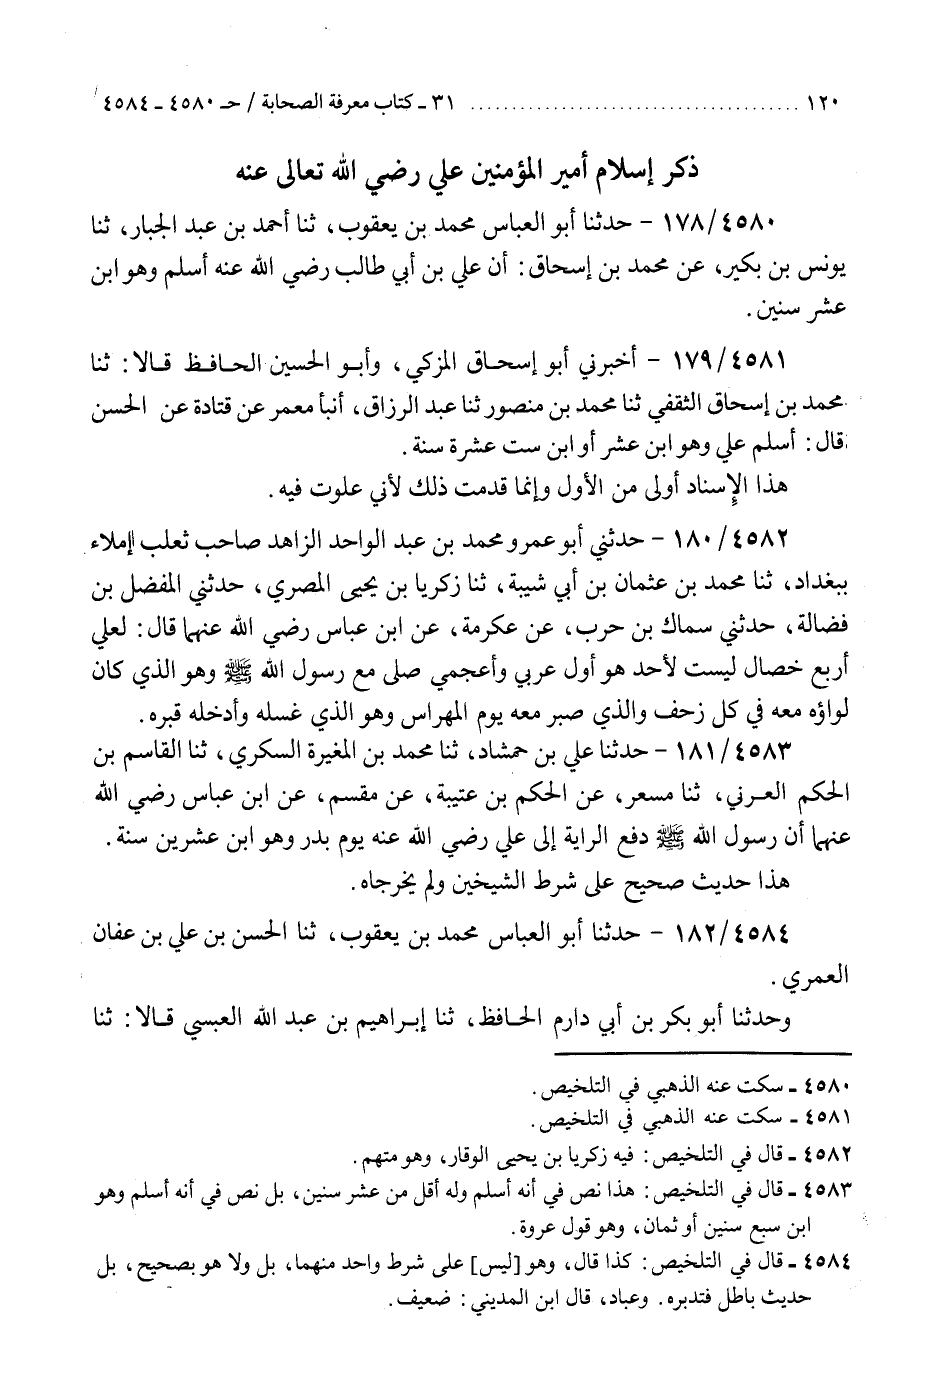 ١٢٠ ........................................ ٣١ ـ كتاب معرفة الصحابة / حـ ٤٥٨٠ ـ ٤٥٨٤
ذكر إسلام أمير المؤمنين علي رضي الله تعالى عنه
١٧٨/٤٥٨٠ - حدثنا أبو العباس محمد بن يعقوب، ثنا أحمد بن عبد الجبار، ثنا
يونس بن بكير، عن محمد بن إسحاق: أن علي بن أبي طالب رضي الله عنه أسلم وهو ابن
عشر سنين.
١٧٩/٤٥٨١ - أخبرني أبو إسحاق المزكي، وأبو الحسين الحافظ قالا: ثنا
محمد بن إسحاق الثقفي ثنا محمد بن منصور ثنا عبد الرزاق، أنبأ معمر عن قتادة عن الحسن
قال: أسلم علي وهو ابن عشر أو ابن ست عشرة سنة.
هذا الإسناد أولى من الأول وإنما قدمت ذلك لأني علوت فيه.
١٨٠/٤٥٨٢ - حدثني أبو عمرو محمد بن عبد الواحد الزاهد صاحب ثعلب إملاء
ببغداد، ثنا محمد بن عثمان بن أبي شيبة، ثنا زكريا بن يحيى المصري، حدثني المفضل بن
فضالة، حدثني سماك بن حرب، عن عكرمة، عن ابن عباس رضي الله عنهما قال: لعلي
أربع خصال ليست لأحد هو أول عربي وأعجمي صلى مع رسول الله ﷺ وهو الذي كان
لواؤه معه في كل زحف والذي صبر معه يوم المهراس وهو الذي غسله وأدخله قبره.
١٨١/٤٥٨٣ - حدثنا علي بن حمشاد، ثنا محمد بن المغيرة السكري، ثنا القاسم بن
الحكم العرني، ثنا مسعر، عن الحكم بن عتيبة، عن مقسم، عن ابن عباس رضي الله
عنهما أن رسول الله ﷺ دفع الراية إلى علي رضي الله عنه يوم بدر وهو ابن عشرين سنة.
هذا حديث صحيح على شرط الشيخين ولم يخرجاه.
١٨٢/٤٥٨٤ - حدثنا أبو العباس محمد بن يعقوب، ثنا الحسن بن علي بن عفان
العمري.
وحدثنا أبو بكر بن أبي دارم الحافظ، ثنا إبراهيم بن عبد الله العبسي قالا: ثنا
٤٥٨٠ ـ سكت عنه الذهبي في التلخيص.
٤٥٨١ ـ سكت عنه الذهبي في التلخيص.
٤٥٨٢ ـ قال في التلخيص: فيه زكريا بن يحيى الوقار، وهو متهم.
٤٥٨٣ ـ قال في التلخيص: هذا نص في أنه أسلم وله أقل من عشر سنين، بل نص في أنه أسلم وهو
ابن سبع سنين أو ثمان، وهو قول عروة.
٤٥٨٤ ـ قال في التلخيص: كذا قال، وهو [ليس] على شرط واحد منهما، بل ولا هو بصحيح، بل
حديث باطل فتدبره. وعباد، قال ابن المديني: ضعيف.